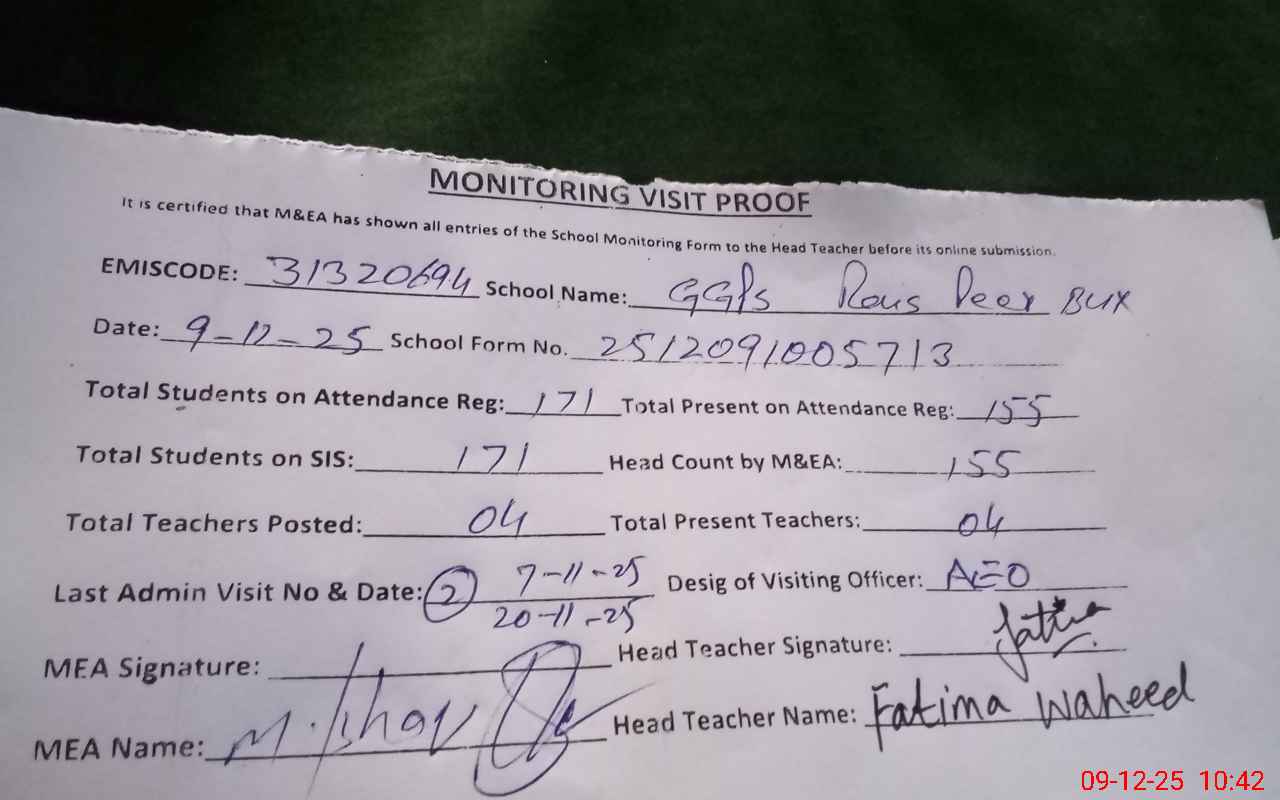 MONITORING VISIT PROOF
It is certified that M&EA has shown all entries of the School Monitoring Form to the Head Teacher before its online submission.
EMISCODE: 31320694 School Name: GGPS Rais Peer BUX
Date: 9-12-25 School Form No. 2512091005713
Total Students on Attendance Reg: 171 Total Present on Attendance Reg: 155
Total Students on SIS: 171 Head Count by M&EA: 155
Total Teachers Posted: 04 Total Present Teachers: 04
Last Admin Visit No & Date: 2 7-11-25 Desig of Visiting Officer: AEO
20-11-25
MEA Signature: Head Teacher Signature: Fatima
MEA Name: Head Teacher Name: Fatima Waheed
09-12-25 10:42